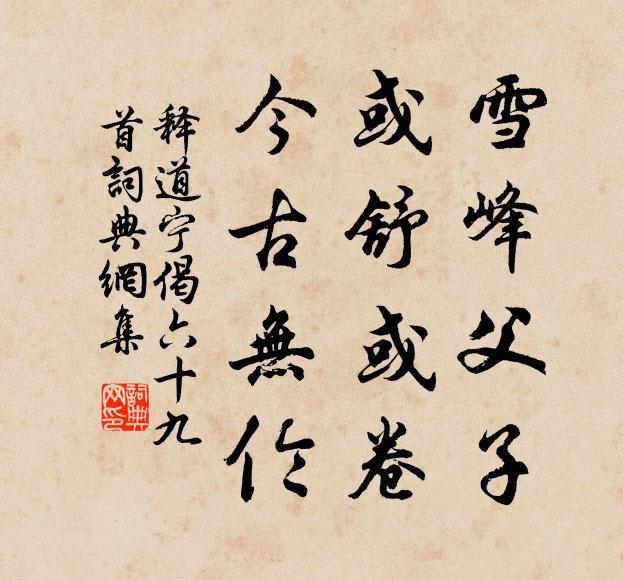 雪峰父子
或舒或卷
今古無伦
释道宁偈六十九
首詞典網集
詞典
网印